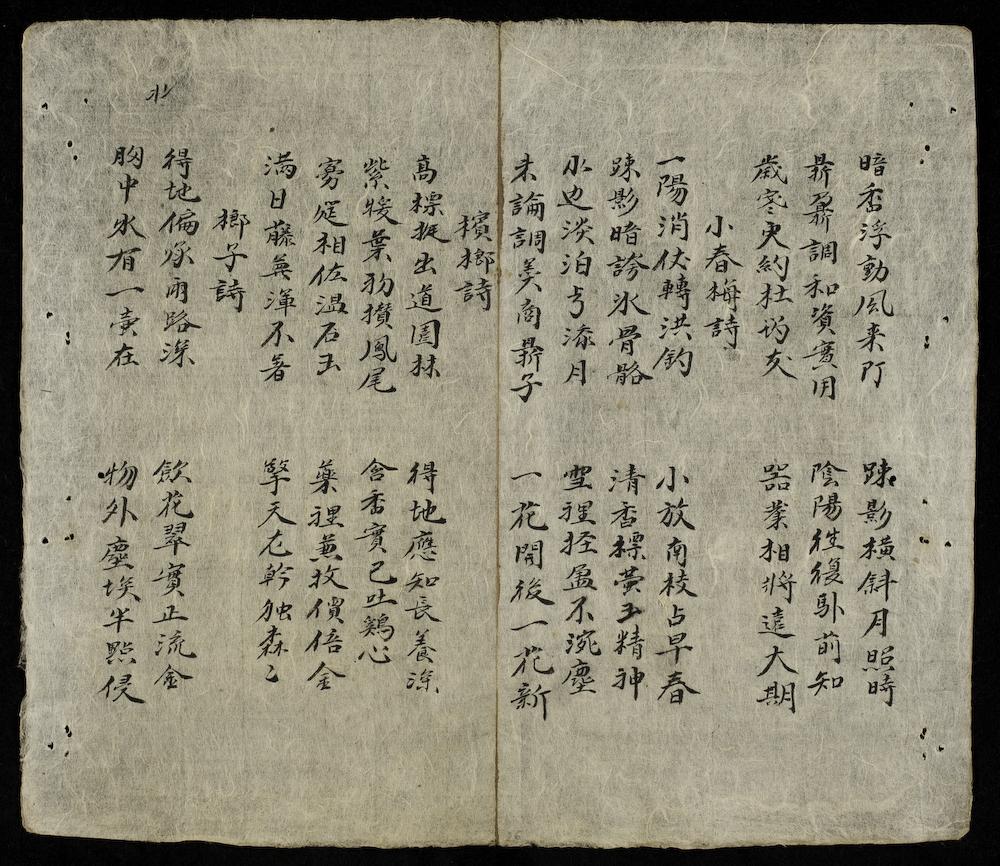 暗香浮動風来 踈影橫斜月照時
鼎鼐調和資實用 陰陽徃復前知
歳寒更約友 器業相將遠大期
小春梅詩
一陽消伏轉洪鈞 小放南枝占早春
踈影暗誇氷骨骼 清香標萼玉精神
水边淡泊月 雪裡輕盈不涴塵
未論調羙商鼎子 一花開後一花新
檳榔詩
高標挺出道園林 得地應知長養深
紫綬葉初攢鳳尾 含香實已吐鷄心
相佐温石玉 藥裡兼收價倍金
满目藤蕪渾不著 擎天尤幹独森〻
榔子詩
得地偏承雨路深 飲花翠實正流金
胸中氷有一壺在 物外塵埃半點侵